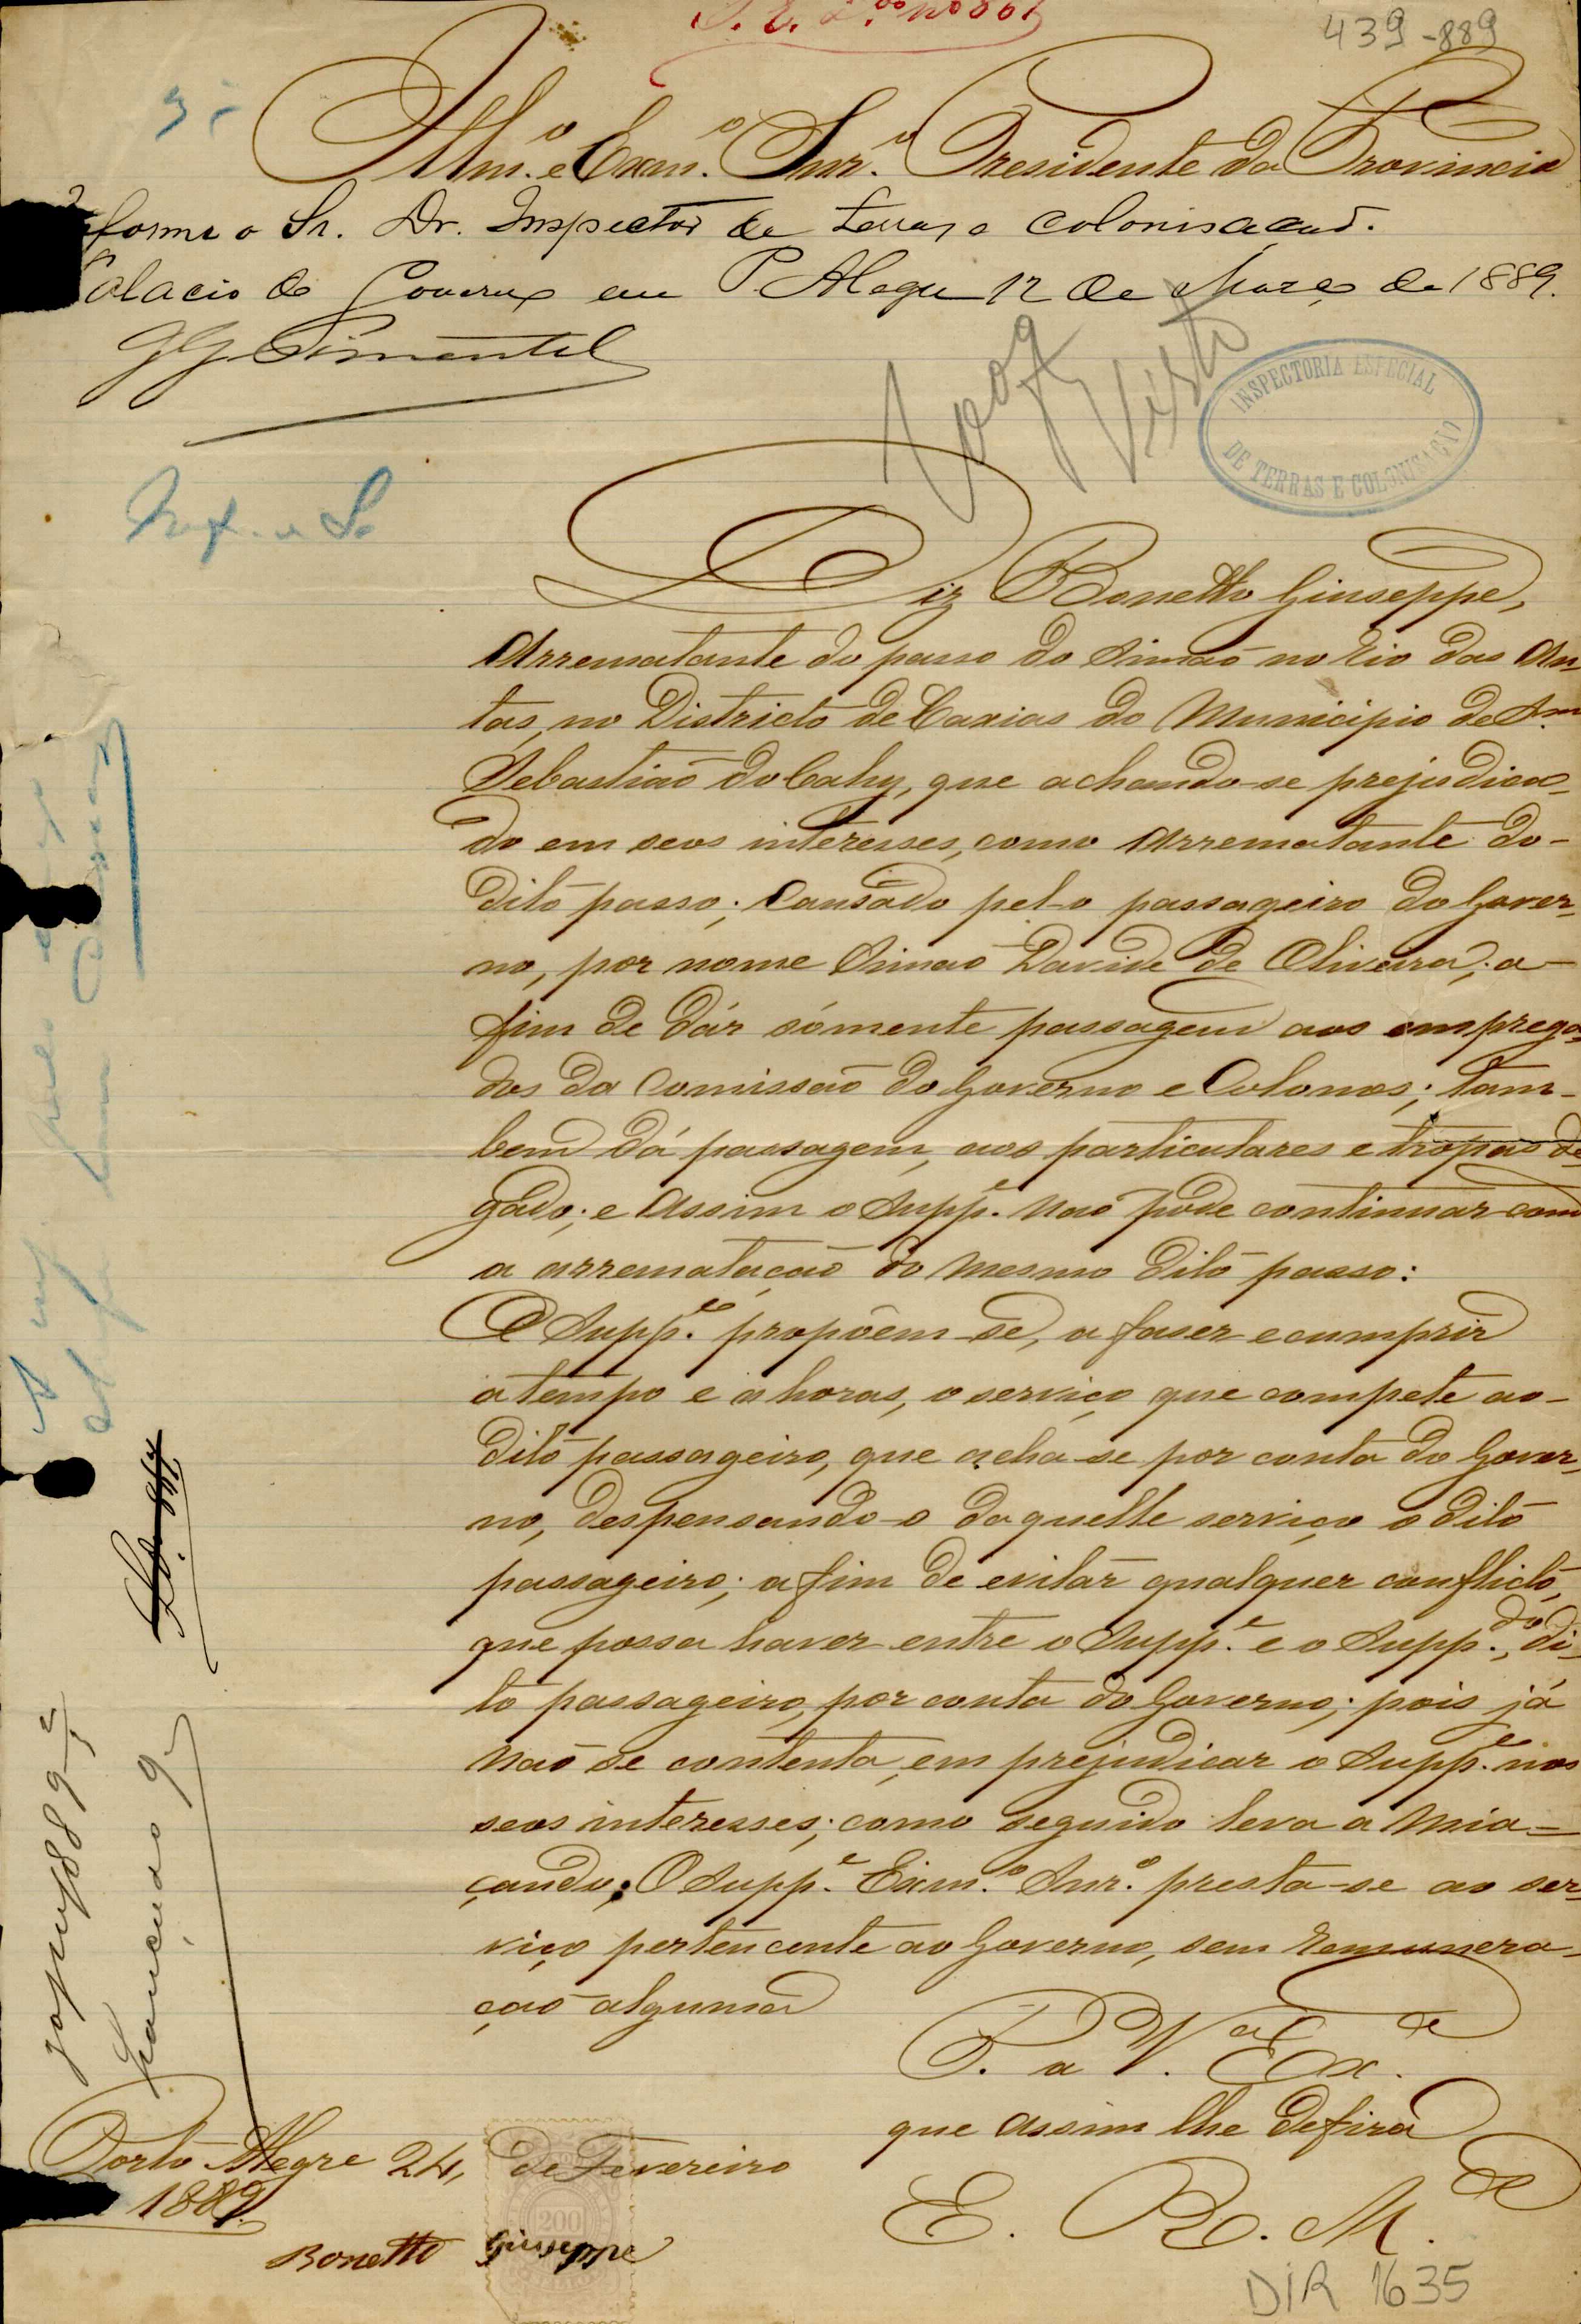 439-889
Illm.o e Exm.o Snr.o Presidente da Provincia
forme o Sr. Dr. Inspector de terras e colonisação.
Palacio do Governo em P. Alegre 12 de Março de 1889.
Pimentel
Visto
INSPECTORIA ESPECIAL
DE TERRAS E COLONISAÇÃO
Diz Bonetto Giuseppe,
Arrematante do passo do Simão no rio das An-
tas, no Districto de Caxias do Municipio de Sm
Sebastião do Cahy, que achando-se prejudica-
do em seos interesses, como Arrematante do-
dito passo; Causado pel-o passageiro do Gover-
no, por nome Simão Davide de Oliveira; a-
fim de dár sómente passagem aos emprega-
dos da Comissão do Governo e Colonos; tam-
bem dá passagem, aos particulares e tropas de
gado; e Assim o Supp.e Não póde continuar com
a arrematação do Mesmo dito passo:
O Supp.e propôem-se, a faser e cumprir
a tempo e a horas, o serviço que compete ao-
dito passageiro, que acha-se por conta do Gover-
no, despensando-o daquelle serviço o dito
passageiro; a fim de evitar qualquer conflicto,
que possa haver entre o Supp.e e o Supp.do, di-
to passageiro, por conta do Governo; pois já
Não se contenta, em prejudicar o Supp.e nos
seos interesses; como seguido leva a Mia-
çando; O Supp.e Exm.o Snr.o presta-se ao ser-
viço pertencente ao Governo, sem Remunera-
ção alguma
P. a V. Ex.a
que assim lhe defira
Porto Alegre 24, de Fevereiro
1889.
200
E. R. M.ce
Bonetto Giuseppe
DIR 1635